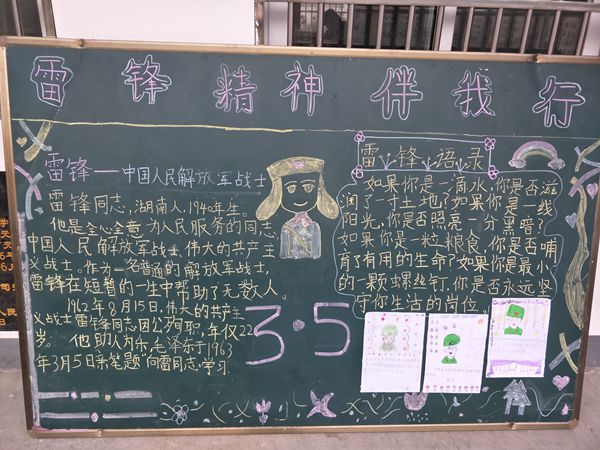 雷锋精神伴我行
雷锋——中国人民解放军战士
雷锋同志,湖南人,1940年生。
他是全心全意为人民服务的同志,
中国人民解放军战士,伟大的共产主
义战士。作为一名普通的解放军战士,
雷锋在短暂的一生中帮助了无数人。
1962年8月15日,伟大的共产主
义战士雷锋同志因公殉职,年仅22
岁。他助人为乐,毛泽东于1963
年3月5日亲笔题"向雷同志学习
3·5
雷锋语录
如果你是一滴水,你是否滋
润了一寸土地?如果你是一线
阳光,你是否照亮一分黑暗?
如果你是一粒粮食,你是否哺
育了有用的生命?如果你是最小
的一颗螺丝钉,你是否永远坚
守你生活的岗位。